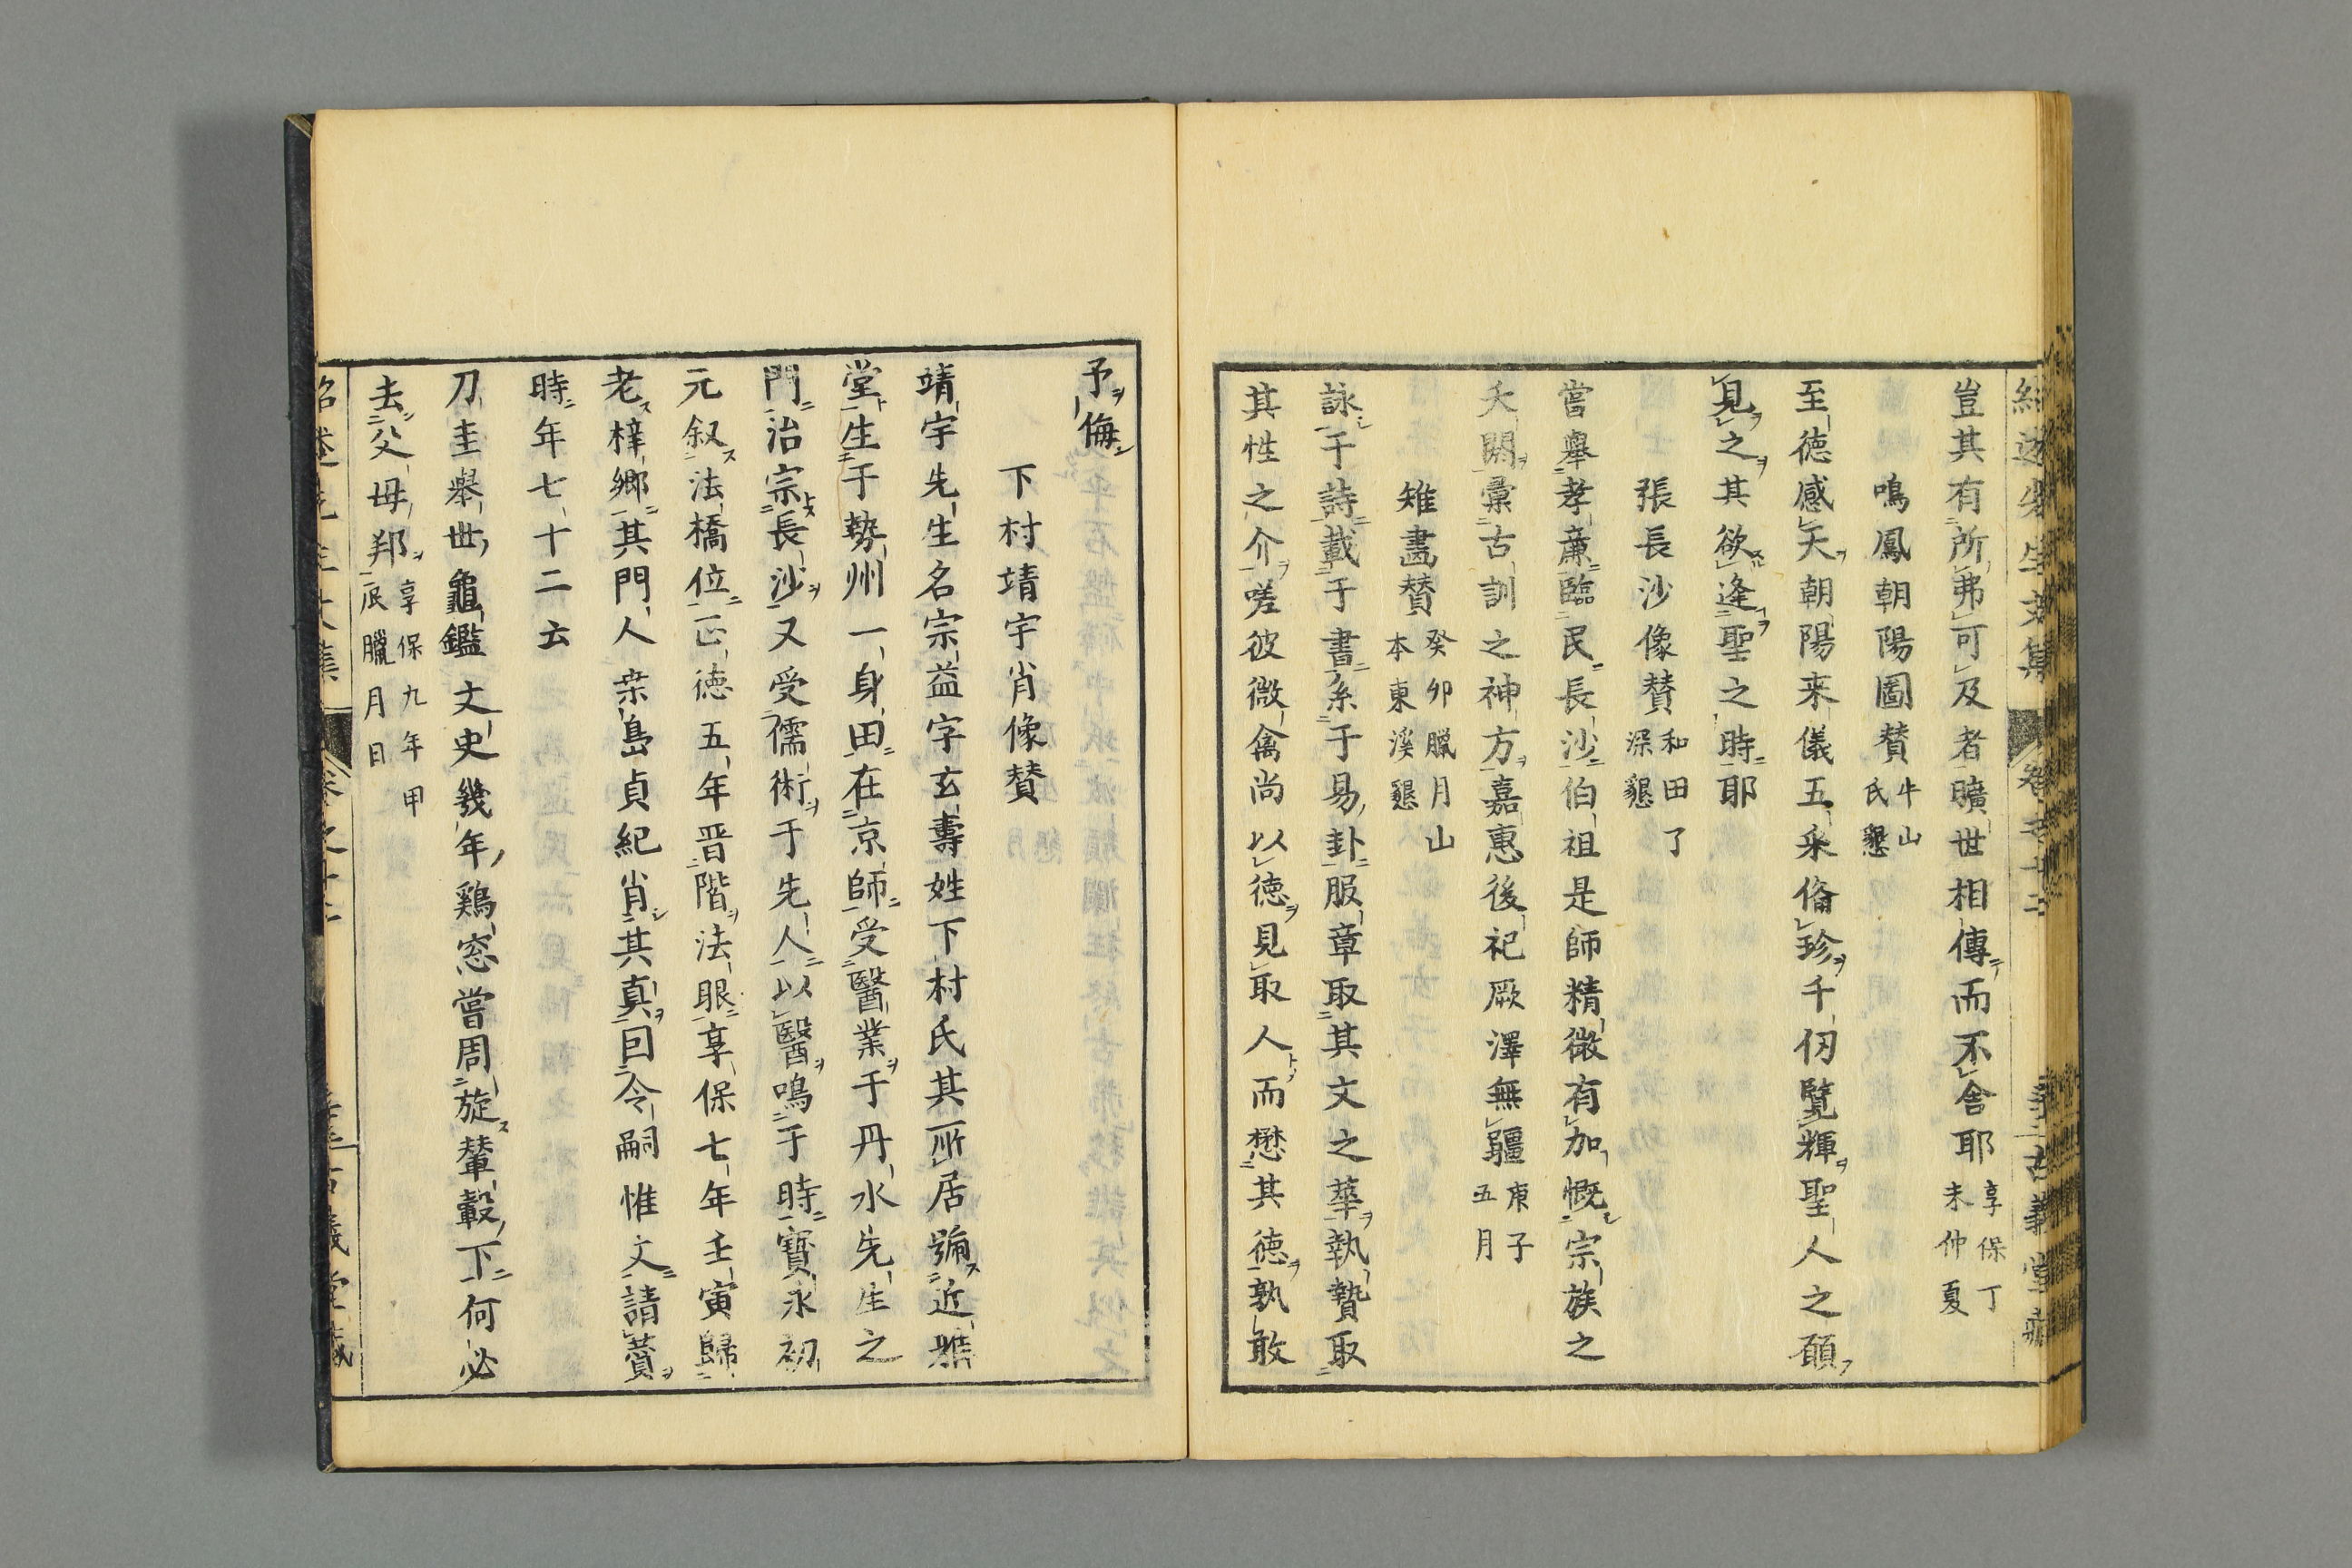 豈其有所弗可及者曠世相傳而不舍耶享保丁
未仲夏
鳴鳳朝陽圖賛牛山
氏懇
至徳感天朝陽来儀五采俻珍千仞覽輝聖人之願
見之其欲逢聖之時耶
張長沙像賛和田了
深懇
嘗舉孝廉臨民長沙伯祖是師精微有加慨宗族之
夭閼彙古訓之神方嘉惠後祀厥澤無疆庚子
五月
雉畵賛癸卯臘月山
本東溪懇
詠于詩載于書系于易卦服章取其文之華執贄取
其性之介嗟彼微禽尚以徳見取人而懋其徳孰敢
予侮
下村靖宇肖像賛
靖宇先生名宗益字玄壽姓下村氏其所居號近雅
堂生于勢州一身田在京師受醫業于丹水先生之
門治宗長沙又受儒術于先人以醫鳴于時寳永初
元叙法橋位正徳五年晋階法眼享保七年壬寅歸
老梓郷其門人桒島貞紀肖其真囙令嗣惟文請賛
時年七十二云
刀圭舉世龜鑑文史幾年鷄窓嘗周旋輦轂下何必
去父母邦享保九年甲
辰臘月日
巻之十二
古義堂藏